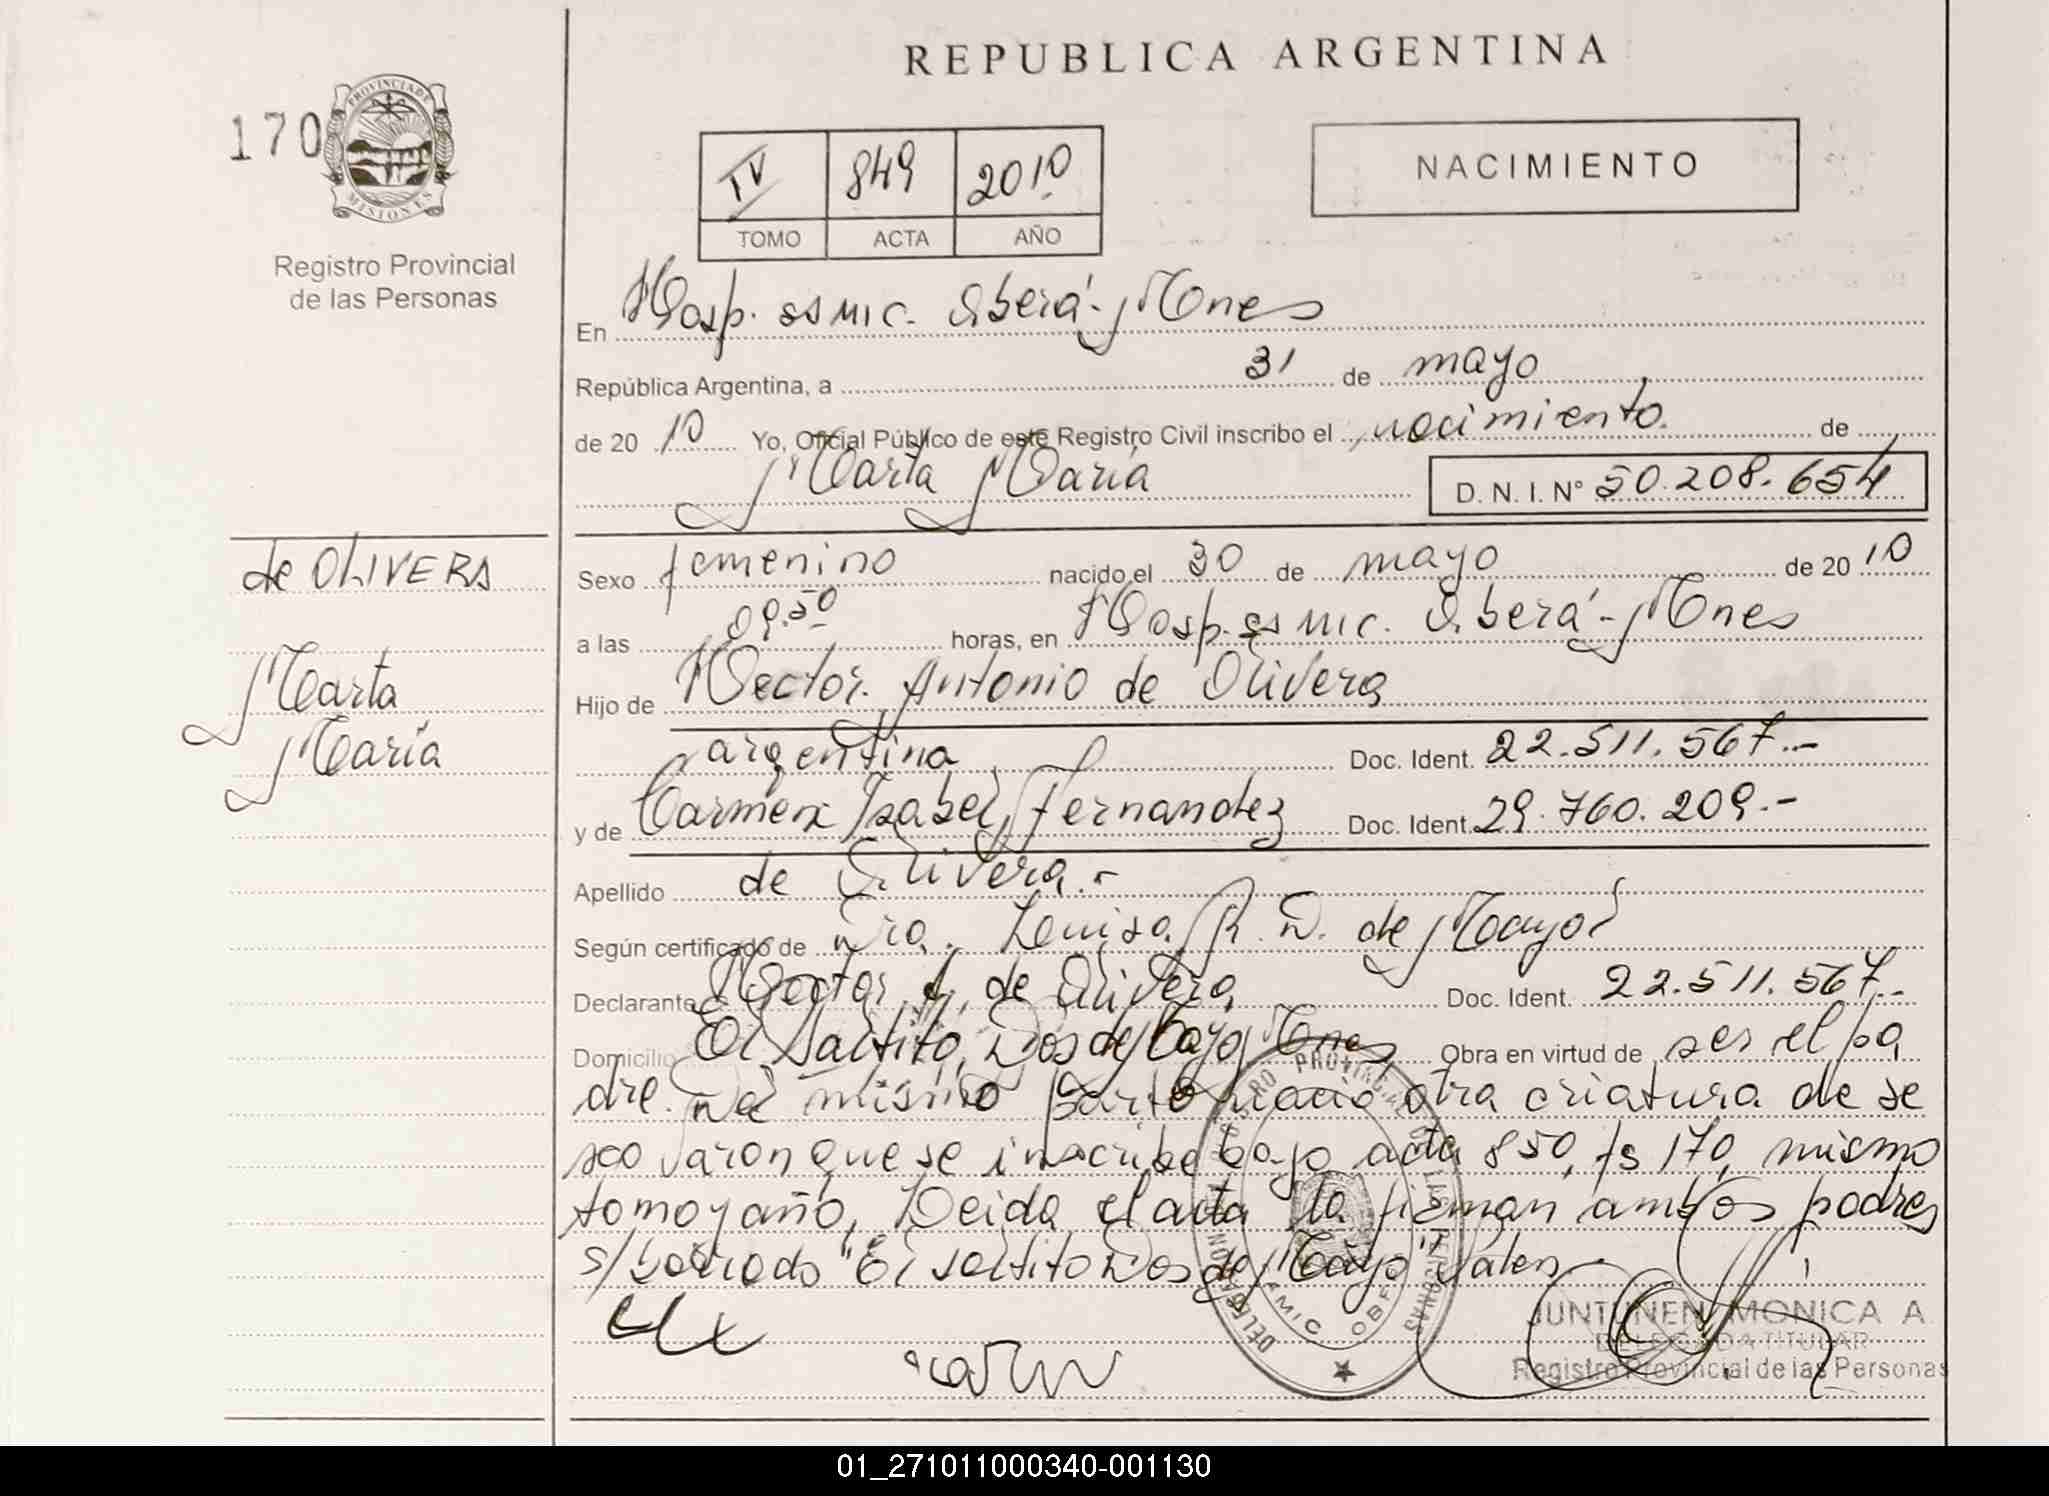 REPUBLICA ARGENTINA
170
PROVINCIA DE
MISIONES
Registro Provincial
de las Personas
IV 849 2010
TOMO ACTA AÑO
NACIMIENTO
En Hosp. ssmic. Oberá-Mnes
República Argentina, a 31 de mayo
de 2010 Yo, Oficial Público de este Registro Civil inscribo el nacimiento. de
Marta María D. N. I. Nº 50.208.654
de OLIVERA
Marta
María
Sexo femenino nacido el 30 de mayo de 2010
a las 09.50 horas, en Hosp. ssmic. Oberá-Mnes
Hijo de Hector Antonio de Olivera
argentina Doc. Ident. 22.511.567.-
y de Carmen Isabel Fernandez Doc. Ident. 29.760.209.-
Apellido de Olivera.-
Según certificado de Dra. Luisa R. D. de Mayol
Declarante Hector A. de Olivera Doc. Ident. 22.511.567.-
Domicilio El Saltito Dos de Mayo Mnes Obra en virtud de ser el pa
dre. Del mismo parto nació otra criatura de se
xo varon que se inscribe bajo acta 850, fs 170, mismo
tomo y año, Leida el acta la firman ambos padres
s/ borrado "El Saltito Dos de Mayo" Valen
REGISTRO PROVINCIAL DE LAS PERSONAS
DELEGACION
AMIC OBERA
JUNTUNEN MONICA A
DELEGADA TITULAR
Registro Provincial de las Personas
01_271011000340-001130